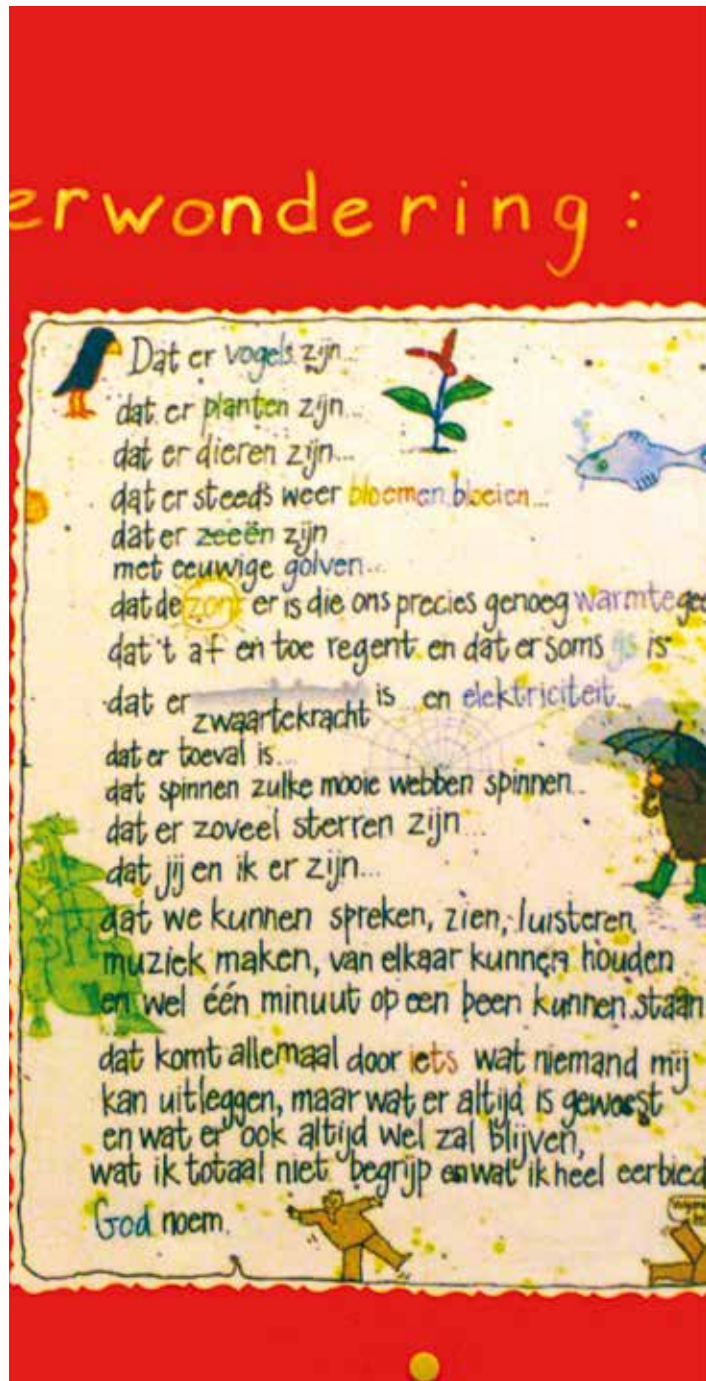 erwondering:
Dat er vogels zijn...
dat er planten zijn...
dat er dieren zijn...
dat er steeds weer bloemen bloeien...
dat er zeeën zijn
met eeuwige golven...
dat de zon er is die ons precies genoeg warmte gee
dat 't af en toe regent en dat er soms ijs is
dat er zwaartekracht is en elektriciteit...
dat er toeval is...
dat spinnen zulke mooie webben spinnen...
dat er zoveel sterren zijn...
dat jij en ik er zijn...
dat we kunnen spreken, zien, luisteren,
muziek maken, van elkaar kunnen houden
en wel één minuut op een been kunnen staan
dat komt allemaal door iets wat niemand mij
kan uitleggen, maar wat er altijd is geweest
en wat er ook altijd wel zal blijven,
wat ik totaal niet begrijp en wat ik heel eerbied
God noem.